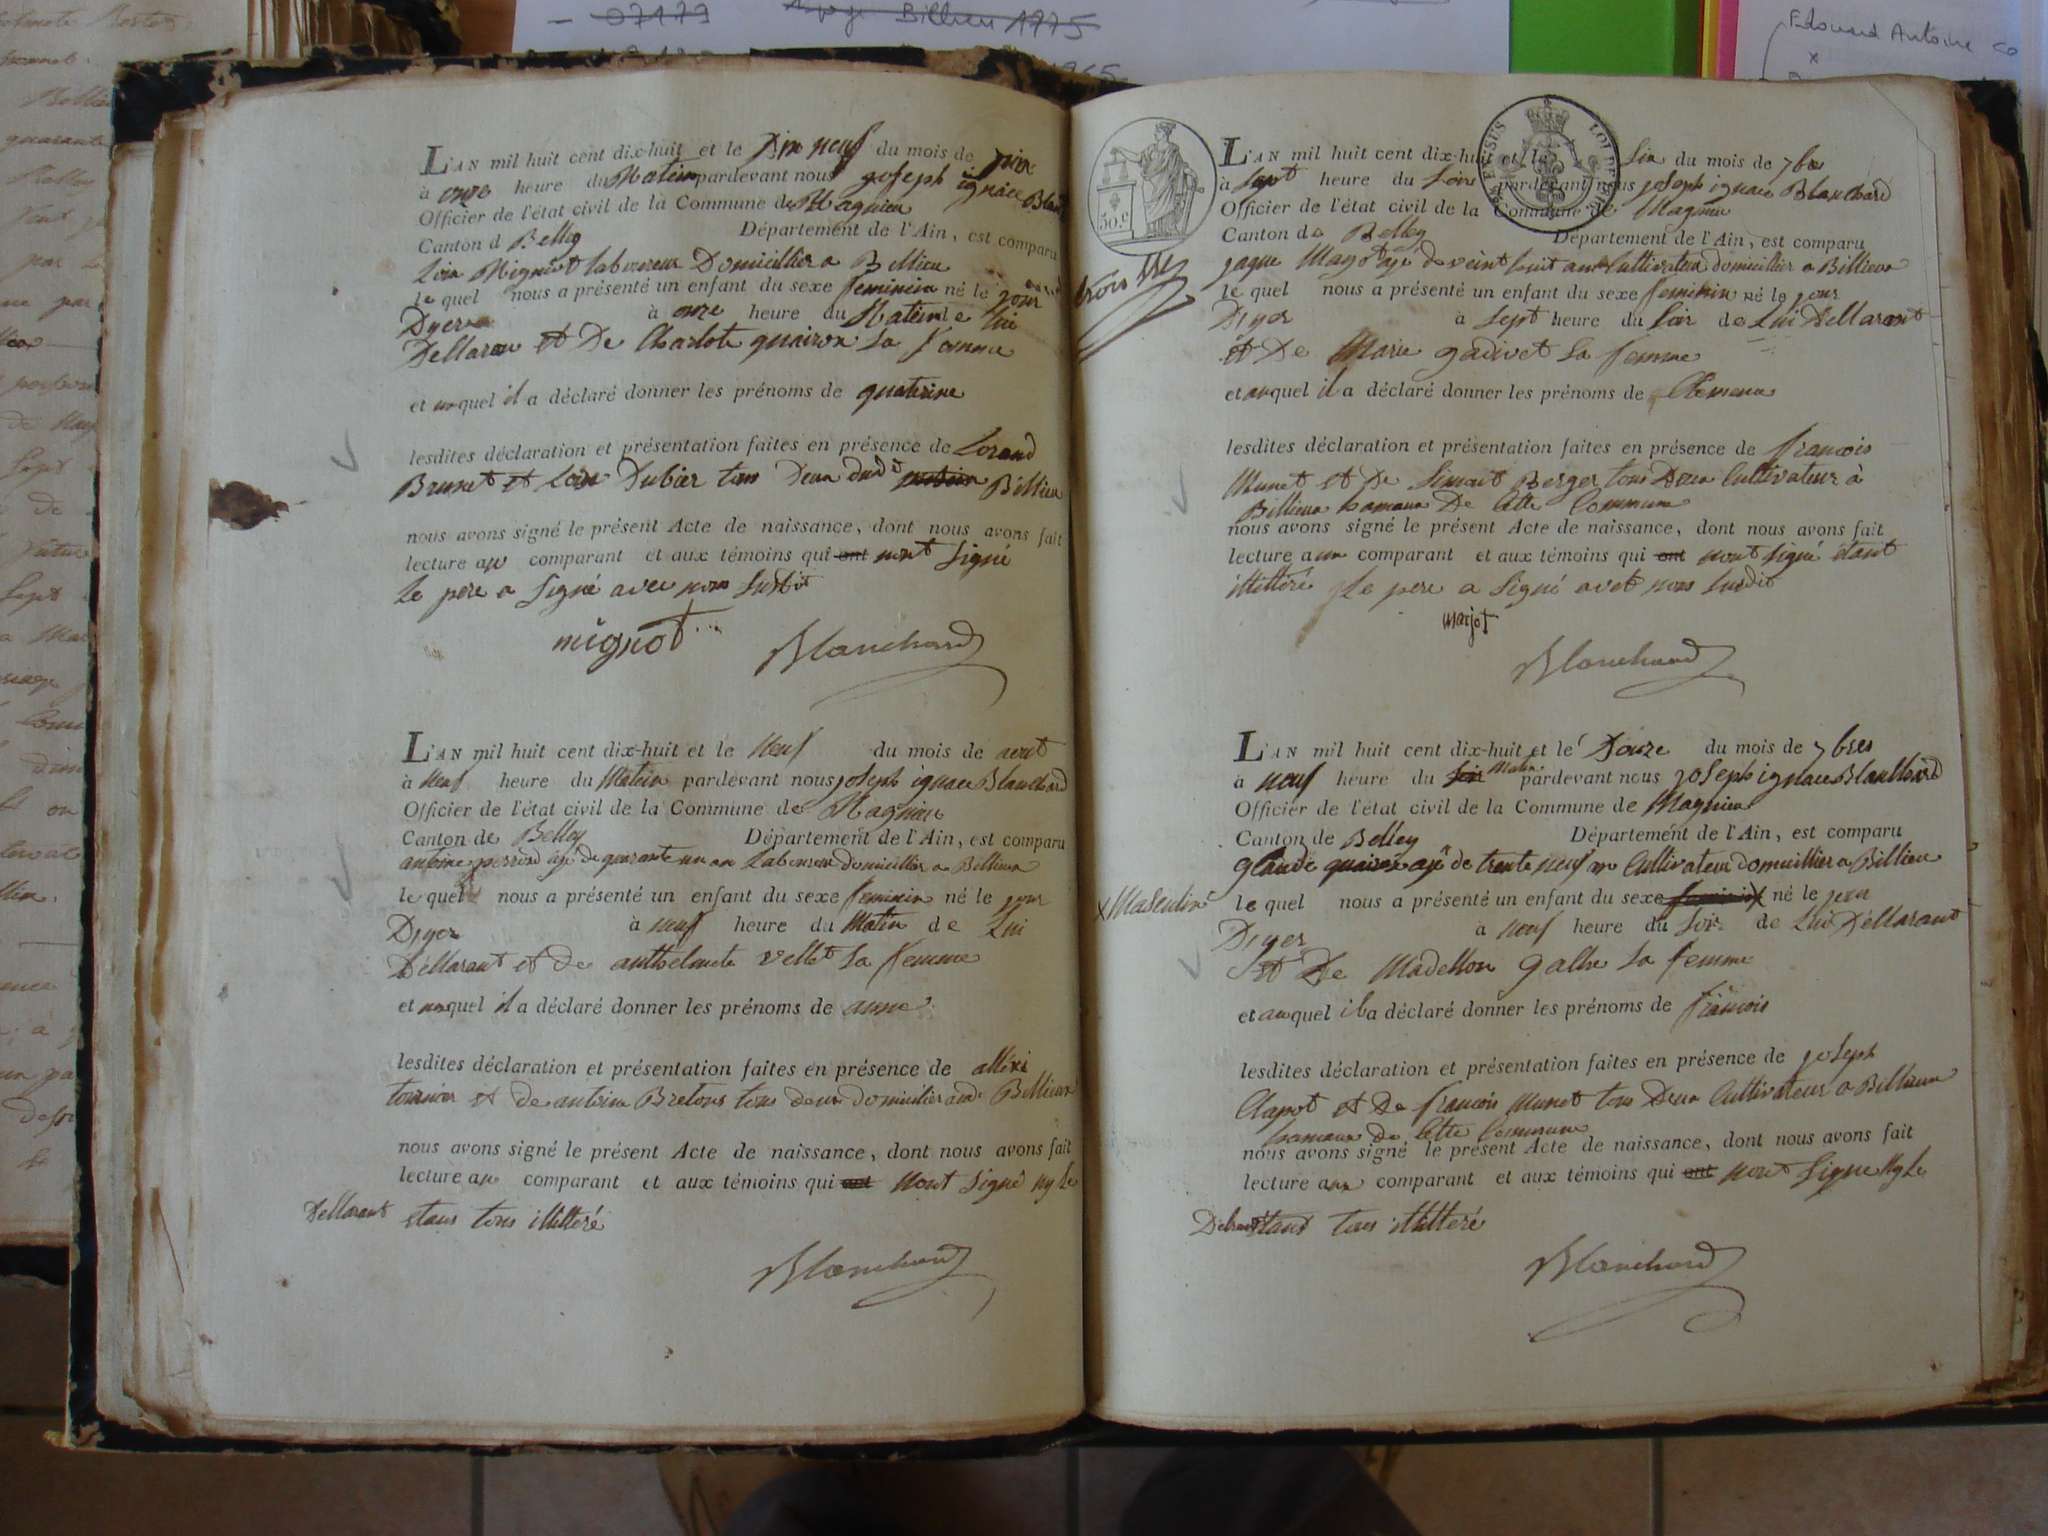 07173
Billieu 1775
Edouard Antoine
L'AN mil huit cent dix-huit et le Dix neuf du mois de
à onze heure du Matin pardevant nous joseph ignace Blan
Officier de l'état civil de la Commune de Magnieu
Canton d Belley Département de l'Ain, est comparu
Loui Mignot laboureur Domicillier a Billieu
le quel nous a présenté un enfant du sexe feminin né le jour
Dyer à onze heure du Matin de lui
Dellaran et De Charlote quairon sa femme
et auquel il a déclaré donner les prénoms de quaterine
lesdites déclaration et présentation faites en présence de Lorand
Brunet et Loui Dubier tous Deux dudt Billieu
nous avons signé le présent Acte de naissance, dont nous avons fait
lecture au comparant et aux témoins qui ont nont Signé
Le pere a Signé avec nous Susdit
mignot
Blanchard
L'AN mil huit cent dix-huit et le neuf du mois de aout
à neuf heure du Matin pardevant nous joseph ignace Blanchard
Officier de l'état civil de la Commune de Magnieu
Canton de Belley Département de l'Ain, est comparu
antoine perrond agé de quarante un an Laboureur domicillier a Billieux
le quel nous a présenté un enfant du sexe feminin né le jour
Dyer à neuf heure du Matin de Lui
Dellarant et de anthelmete vellet sa femme
et auquel il a déclaré donner les prénoms de anne
lesdites déclaration et présentation faites en présence de alléxi
tournier et de antoine Bretons tous deux domicilier aud. Billieux
nous avons signé le présent Acte de naissance, dont nous avons fait
lecture au comparant et aux témoins qui ont nont Signé ny Le
Dellarant etans tous illitteré
Blanchard
50 c
trois
L'AN mil huit cent dix-huit et le Six du mois de 7bre
à Sept heure du Soir pardevant nous joseph ignace Blanchard
Officier de l'état civil de la Commune de Magnieu
Canton de Belley Département de l'Ain, est comparu
jaque Marjot agé de veint huit ans Cultivateur domicillier a Billieux
le quel nous a présenté un enfant du sexe feminin né le jour
Dyer à Sept heure du Soir de Lui Dellarant
et De Marie gadivet sa femme
et auquel il a déclaré donner les prénoms de
lesdites déclaration et présentation faites en présence de francois
Munet et De Simont Berger tous Deux Cultivateur à
Billieux hamaux De Cette Commune
nous avons signé le présent Acte de naissance, dont nous avons fait
lecture aux comparant et aux témoins qui ont nont signé étant
illitteré Le pere a Signé avet nous Susdit
marjot
Blanchard
L'AN mil huit cent dix-huit et le Douze du mois de 7bres
à neuf heure du Soir Matin pardevant nous joseph ignace Blanchard
Officier de l'état civil de la Commune de Magnieu
Canton de Belley Département de l'Ain, est comparu
glaude quairon agé de trente neuf an Cultivateur domicillier a Billieu
X Masculin le quel nous a présenté un enfant du sexe feminin X né le jour
Dyer à neuf heure du Soir de Lui Dellarant
et De Madellon galhe sa femme
et auquel il a déclaré donner les prénoms de francois
lesdites déclaration et présentation faites en présence de joseph
Clapot et De francois Munet tous Deux Cultivateur a Billieux
hamaux de Cette Commune
nous avons signé le présent Acte de naissance, dont nous avons fait
lecture aux comparant et aux témoins qui ont nont Signe Ny Le
étant tous illitteré
Blanchard